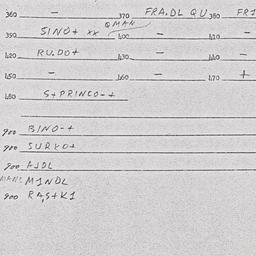 360 - 370 FRA.DL QU 380 FRI
QMAN
390 SINO+ xx 400 - 410 -
420 RU.DO+ 430 - 440 -
450 - 460 - 470 +
480 S+PRINCO-+
900 BINO-+
900 SURKO+
900 AJDL
MINDL
900 RA,S+KI